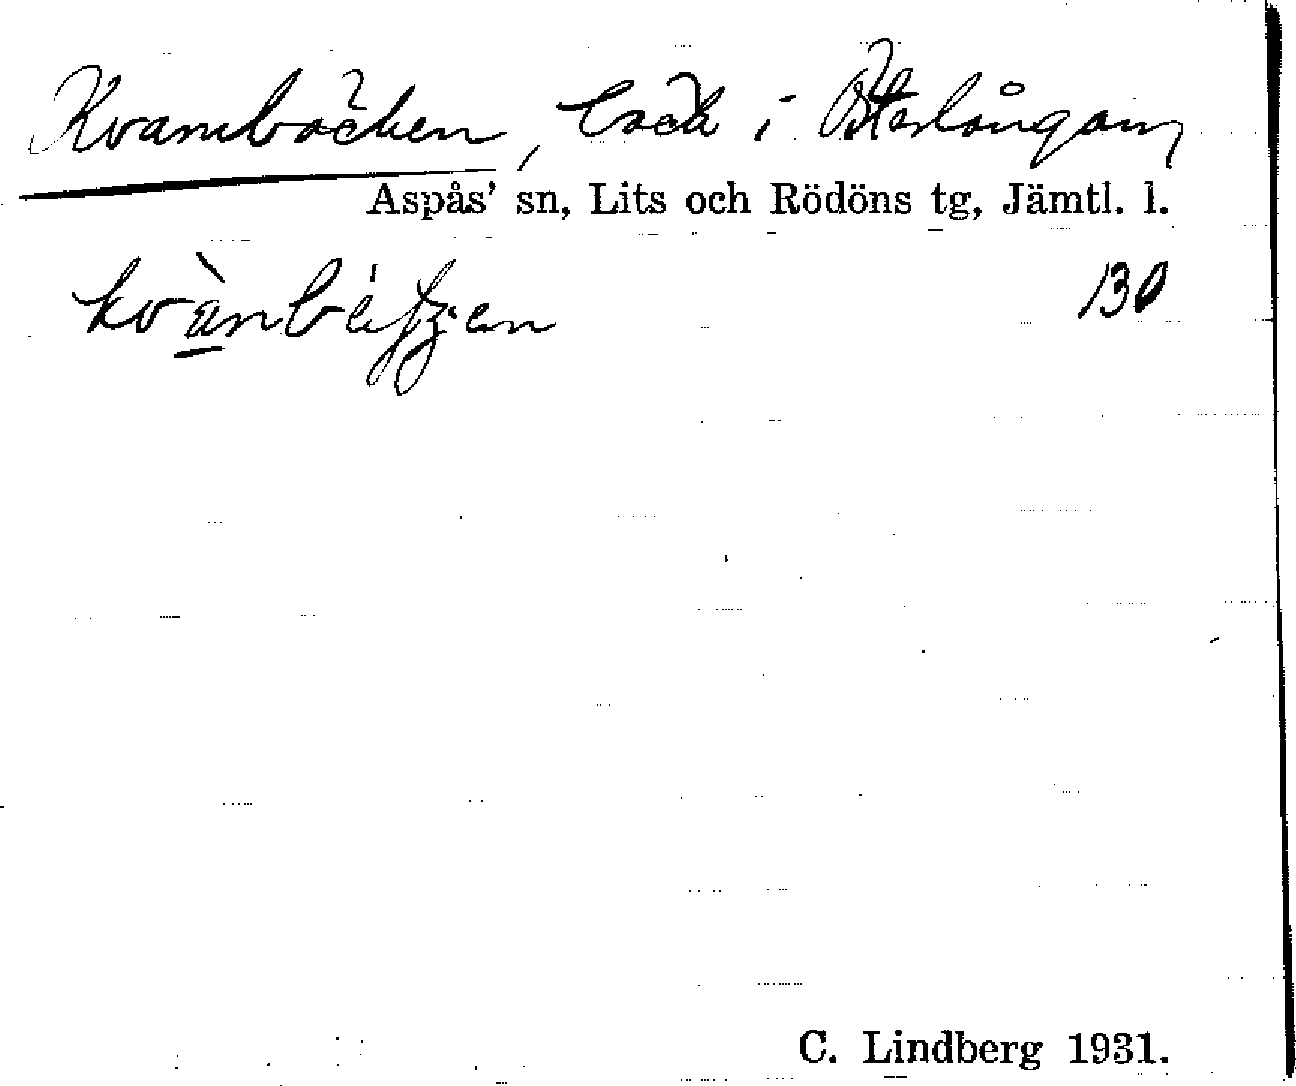 Kvarnbäcken, bäck i Österlångan,
Aspås' sn, Lits och Rödöns tg, Jämtl. l.
130
C. Lindberg 1931.